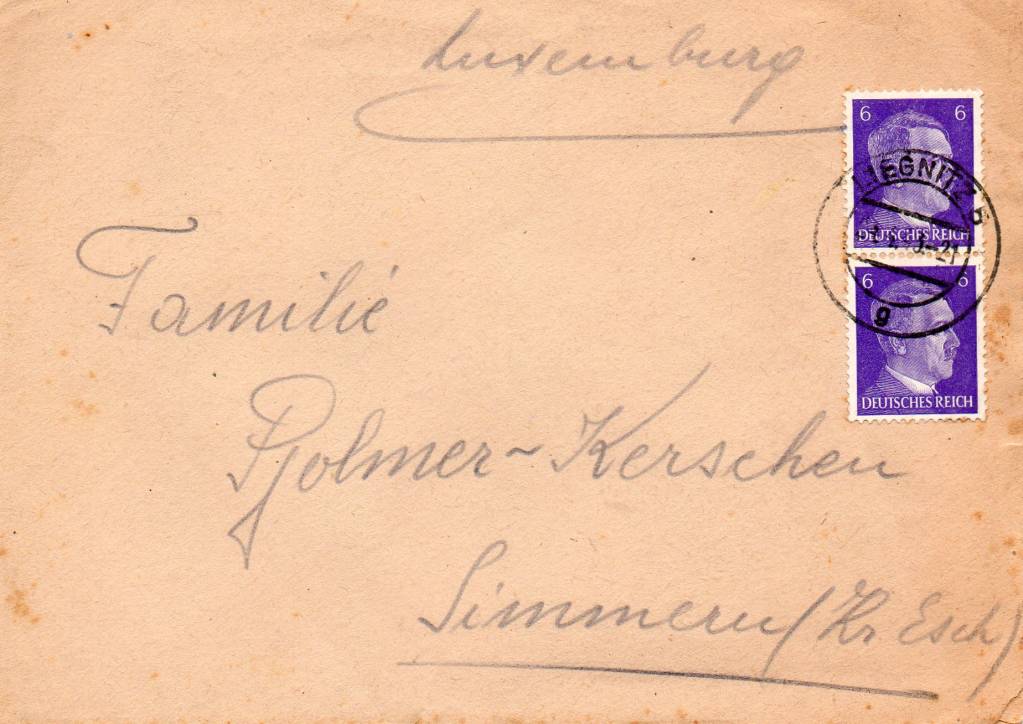 Luxemburg
6 6
LIEGNITZ 5
DEUTSCHES REICH
-21
g
6 6
DEUTSCHES REICH
Familie
Pjolmer-Kerschen
Simmern (Kr Esch)